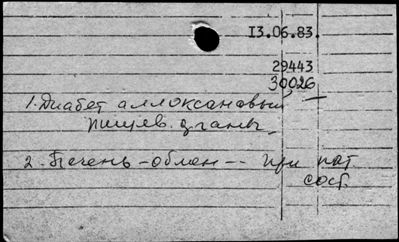 13.06.83.
29443
30026
1. Диабет аллоксановый —
пищев. др
2. Печень – обмен -- при пат.
сост.